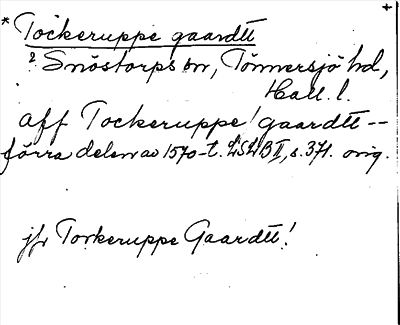 +
* Tockeruppe gaardtt
? Snöstorps sn, Tönnersjö hd,
Hall. l.
aff Tockeruppe! gaardtt --
förra delen av 1570-t. LSLB II, s. 371. orig.
jfr Torkeruppe Gaardtt!